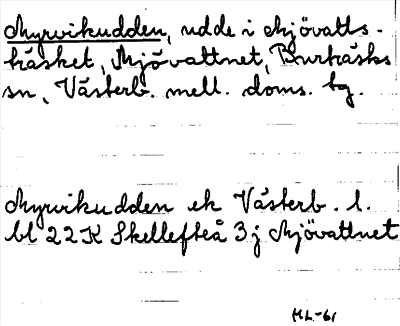 Myrvikudden, udde i Mjövatts-
träsket, Mjövattnet, Burträsks
sn, Västerb. mell. doms. tg.
Myrvikudden ek Västerb. l.
bl 22K Skellefteå 3j Mjövattnet
HL-61